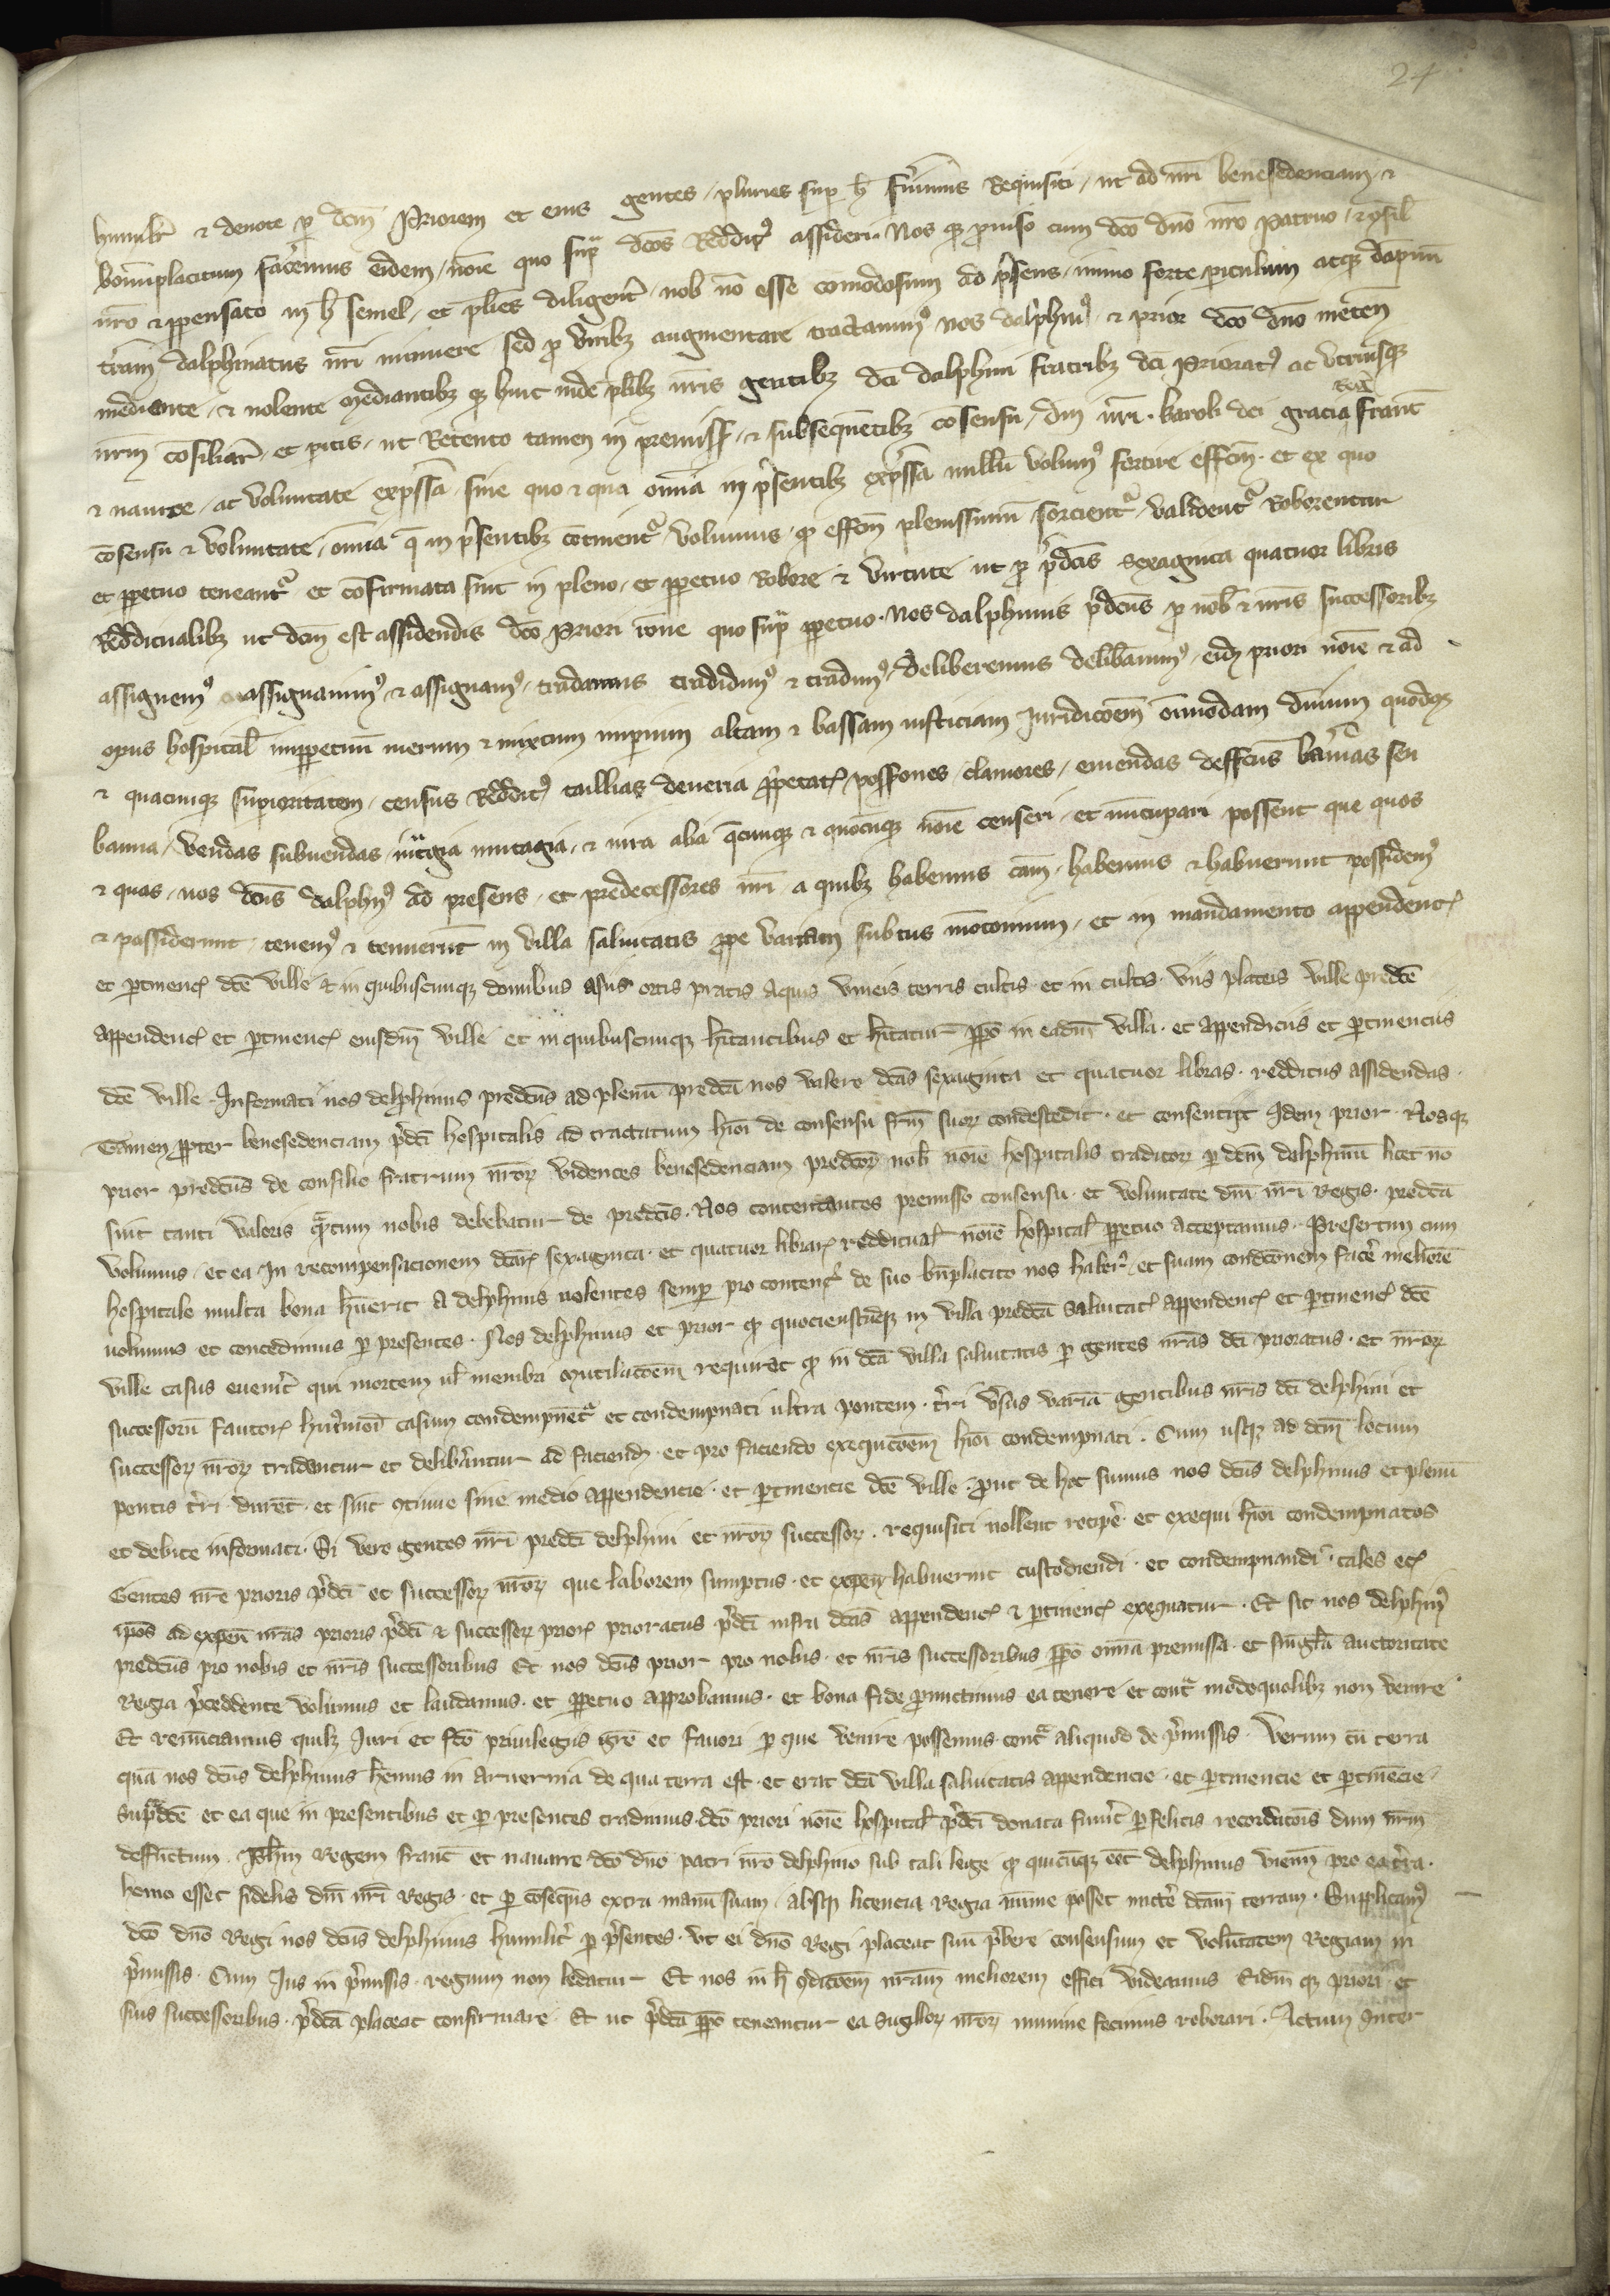 24
humilit̄ & deuote ꝑ dcm̄ Priorem et eius gentes / pluries suꝑ h̄ fuimus Requisiti / ut ad nr̄i benesedenciam / &
bonūplacitum facemus eidem / noīe quo supᵃ dcos̄ Reddit⁹ assideri. Nos qʒ ꝓuiso cum dco̅ dno̅ nr̄o Patruo / & ꝯsil̄
nr̄o & ꝑpensato in h̄ semel / et pl̄ies diligent̄ / nob̄ no̅ esse comodosum ad p̄sens / immo forte ꝑiculum atqʒ dāpnū
t̄ram̄ dalphinatus nr̄i minuere sed ꝓ viribʒ augmentare tractauim⁹ nos dalphin⁹ / & prior dco̅ dno̅
mediante / & uolente mediantibʒ qʒ hinc inde pl̄ibʒ nr̄is gentibʒ dc̄i dalphini fratribʒ dc̄i Priorat⁹ ac utriusqʒ
nr̄m co̅siliar̄ / et ꝑitis / ut Retento tamen in premiss̄ / & subsequētibʒ co̅sensu / dn̄i nr̄i. karoli dei gracia Franc̄
& nauarre / ac voluntate exp̄ssa / sine quo & qua omīa in p̄sentibʒ exp̄ssa nullū volum⁹ sortire effc̄m. et ex quo
co̅sensu & voluntate / omīa q̄ in p̄sentibʒ co̅tinentᵘ volumus / qʒ effc̄m plenissimū sorcientᵘ / validentᵘ roborentur
et ꝑpetuo teneantᵘ et co̅firmata sint in pleno / et ꝑpetuo Robore & virtute ut ꝓ p̄dc̄is sexaginta quatuor libris
Reddicualibʒ ut dcm̄ est assidendis dco̅ Priori noīe quo supᵃ ꝑpetuo. Nos dalphinus p̄dcus̄ ꝓ nob̄ & nr̄is successoribʒ
assignem⁹ assignauim⁹ & assignam⁹ / tradamus tradidim⁹ & tradim⁹ / deliberemus delib̄auim⁹ / eidʒ priori noīe & ad
opus hospital̄ inꝑpetuū merum & mixtum imꝑium altam & bassam iusticiam Juridico̅em̄ oīmodam dn̄ium quodqʒ
& quacunqʒ suꝑioritatem / census Reddit⁹ taillias deueria ꝓprietat̄ possones̄ / clamores / emendas deffectus bannas seu
banna / vendas subuendas / mutagia / & iura alia q̄cunqʒ & quocūqʒ noīe censeri / et nūcupari possent que quos
& quas / nos dcus̄ dalphin⁹ ad presens / et predecessores nr̄i / a quibʒ habemus cam̄ / habemus & habuerunt possidem⁹
& possiderunt / tenem⁹ & tenuerūt in villa saluitatis ꝓpe variam subtus mo̅tonum / et in mandamento appendent̄
et ꝑtinenc̄ dc̄e ville & in quibuscunqʒ domibus ortis pratis aquis vineis terris cultis et in cultis. viis plateis ville predc̄e
appendenc̄ et ꝑtinenc̄ eiusdm̄ ville et in quibuscunqʒ hītantibus et hītatur ꝑpo̅ in eadm̄ villa. et appendiciis et ꝑtinenciis
dc̄e ville. Informati nos delphinus predcus̄ ad plenū predc̄a nos valere dc̄as sexaginta et quatuor libras. redditus assidendas.
Tamen ꝓpter benesedenciam p̄dc̄i hospitalis ad tractatum hīoi de consensu frm̄ suoꝝ condescedit. et consentijt Idem prior. Nosqʒ
prior predcus̄ de consilio fratrum nr̄oꝝ videntes benesedenciam predcoꝝ̄ nob̄ noīe hospitalis traditoꝝ ꝑ dcm̄ dalphinū licet no̅
sint tanti valoris qᵃntum nobis debebatur de predc̄is. Nos contentantes premisso consensu. et voluntate dn̄i nr̄i Regis. predc̄a
volumus / et ea In recompensacionem dcaꝝ̄ sexaginta. et quatuor libraꝝ reddicual̄ noīe hospital̄ ꝑpetuo acceptamus. Presertim cum
hospitale multa bona hūerit a delphinis uolentes semꝑ pro content̄ de suo bn̄placito nos habēr̄ / et suam condc̄onem fac̄e meliorē
uolumus et concedimus ꝑ presentes. Nos delphinus et prior qʒ quocienscūqʒ in villa predc̄a saluitat̄ appendenc̄ et ꝑtinenc̄ dc̄e
ville casus euenīt qui mortem ul̄ membri mutilac̄oem̄ requirat qʒ in dc̄a villa saluitatis ꝑ gentes nr̄as dc̄i prioratus. et nr̄oꝝ
successorū fautoꝝ hmōi casum condempnētᵘ et condempnati ultra pontem. t̄ri v̄sus variā gentibus nr̄is dc̄i delphini et
successoꝝ nr̄oꝝ tradentur et delib̄antur ad faciendʒ. et pro faciendo exequc̄oem̄ hīoi condempnati. Cum usqʒ ad dcm̄ locum
pontis t̄ri durēt. et sint ꝯtinue sine medio appendencie. et ꝑtinencie dc̄e ville. ꝓut de hoc sumus nos dcus̄ delphinus et plenū
et debite informati. Si vero gentes nr̄i predc̄i delphini et nr̄oꝝ successoꝝ. requisiti nollent recip̄e. et exequi hīoi condempnatos
Gentes nr̄e prioris p̄dc̄i et successoꝝ nr̄oꝝ que laborem sumptus. et expen̄ habuerint custodiendi. et condempnandi. tales etc̄
ip̄os ad expen̄ nr̄as prioris p̄dc̄i & successoꝝ prioꝝ prioratus p̄dc̄i infra dc̄as appendenc̄ & ꝑtinenc̄ exequatur. Et sic nos delphin⁹
predcus̄ pro nobis et nr̄is successoribus Et nos dcus̄ prior pro nobis. et nr̄is successoribus ꝑpo̅ omīa premissa. et singl̄a auctoritate
Regia p̄ceddente volumus et laudamus. et ꝑpetuo approbamus. et bona fide ꝓmictimus ea tenere et contᵃ modoquolibʒ non venire
Et renūciamus quibʒ Iuri et fco̅ priuilegiis gr̄e et fauori ꝑ que venire possemus contᵃ aliquod de p̄missis. Verum cū terra
quā nos dcus̄ delphinus hēmus in aruernia de qua terra est. et erat dc̄a villa saluitatis appendencie. et ꝑtinencie et ꝑtinēcie.
supᵃdc̄e et ea que in presentibus et ꝑ presentes tradimus. dco̅ priori noīe hospital̄ p̄dc̄i donata funīt ꝑ felicis recordac̄ois dnm̄ nr̄m
deffūctum. Ph̄m Regem franc̄ et nauarre dco̅ dno̅ patri nr̄o delphino sub tali lege qʒ quicūqʒ eēt delphinus vienn̄ pro ea t̄ra.
homo esset fidelis dn̄i nr̄i Regis. et ꝑ co̅seqn̄s extra manū suam. absqʒ licencia Regia mīme posset mict̄e dcam̄ terram. Supplicam⁹
dco̅ dno̅ Regi nos dcus̄ delphinus humilit̄ ꝑ p̄sentes. vt ei dno̅ Regi placeat suū p̄bere consensum et volūtatem Regiam in
p̄missis. Cum Ius in p̄missis. regium non ledatur Et nos in h̄ ꝯdic̄oem̄ nr̄am meliorem effici videamus Eidm̄ qʒ priori. et
suis successoribus. p̄dc̄a placeat confirmare. Et ut p̄dc̄a ꝑpo̅ teneantur ea sigilloꝝ nr̄oꝝ munime fecimus roborari. Actum Inter